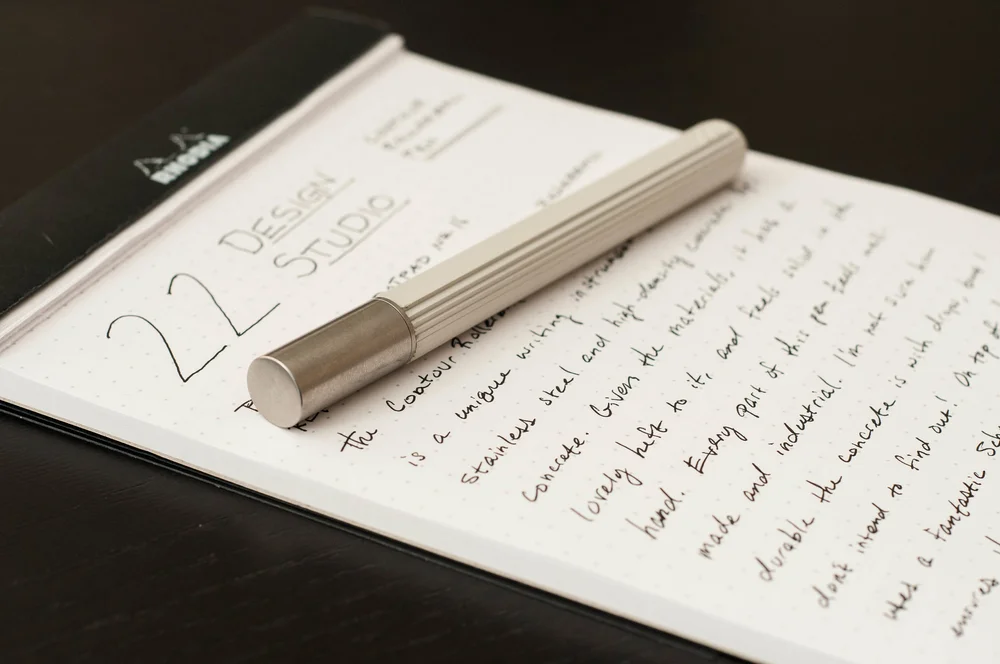 RHODIA
22 DESIGN
STUDIO
CONTOUR
ROLLERBALL
PEN
the Contour Rollerb
is a unique writing instrum
stainless steel and high-density concrete
concrete. Given the materials, it has a
lovely heft to it, and feels solid in the
hand. Every part of this pen feels well
made and industrial. I'm not sure how
durable the concrete is with drops, and I
don't intend to find out! On top of
uses a fantastic Sch
ensures